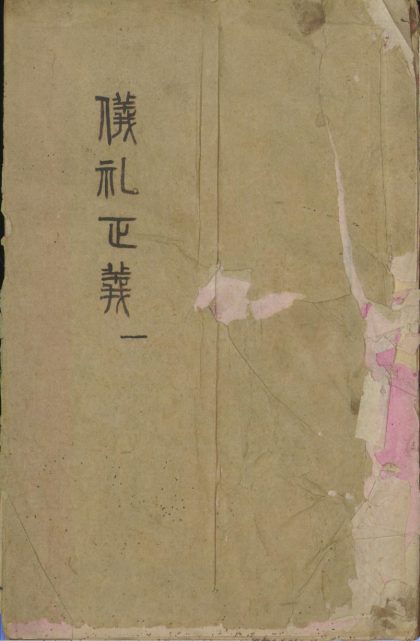 儀礼正義 一